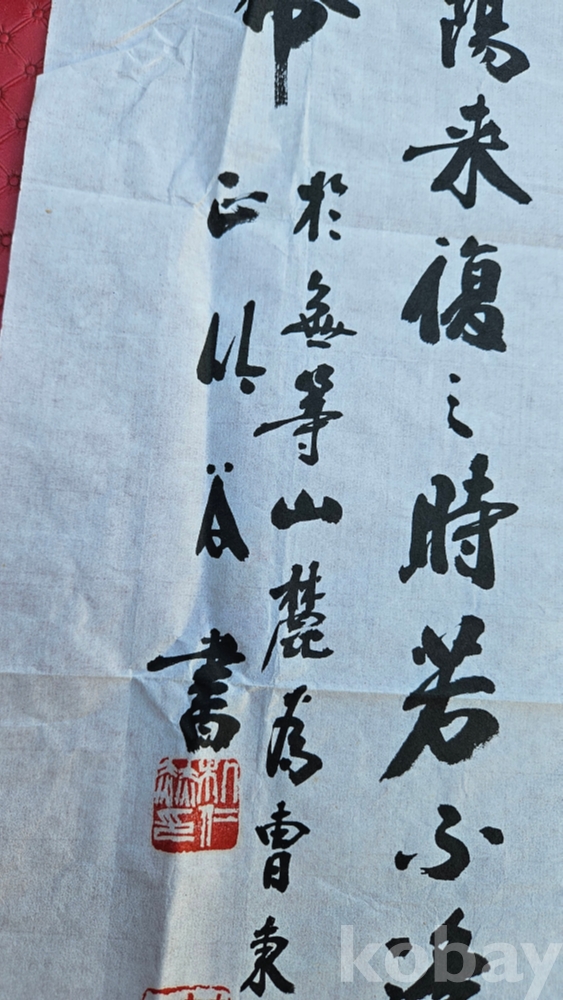 陽来復之時若不
於無等山麓為曹東
正竹谷書
kobay